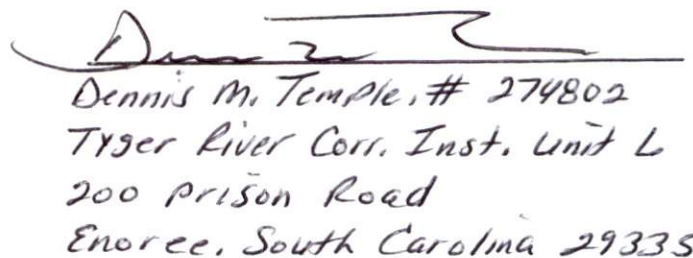 Dennis M. Temple, # 274802
Tyger River Corr. Inst. Unit L
200 Prison Road
Enoree, South Carolina 29335